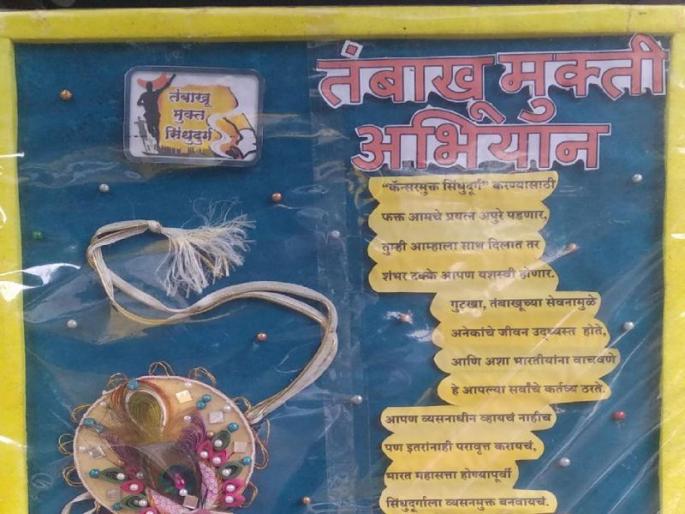 तंबाखू
मुक्त
सिंधुदुर्ग
तंबाखू मुक्ती
अभियान
"कॅन्सरमुक्त सिंधुदूर्ग" करण्यासाठी
फक्त आमचे प्रयत्न अपुरे पडणार,
तुम्ही आम्हाला साथ दिलात तर
शंभर टक्के आपण यशस्वी होणार.
गुटखा, तंबाखूच्या सेवनामुळे
अनेकांचे जीवन उद्ध्वस्त होते,
आणि अशा भारतीयांना वाचवणे
हे आपल्या सर्वांचे कर्तव्य ठरते.
आपण व्यसनाधीन व्हायचं नाहीच
पण इतरांनाही परावृत्त करायचं,
भारत महासत्ता होण्यापूर्वी
सिंधुदूर्गाला व्यसनमुक्त बनवायचं.